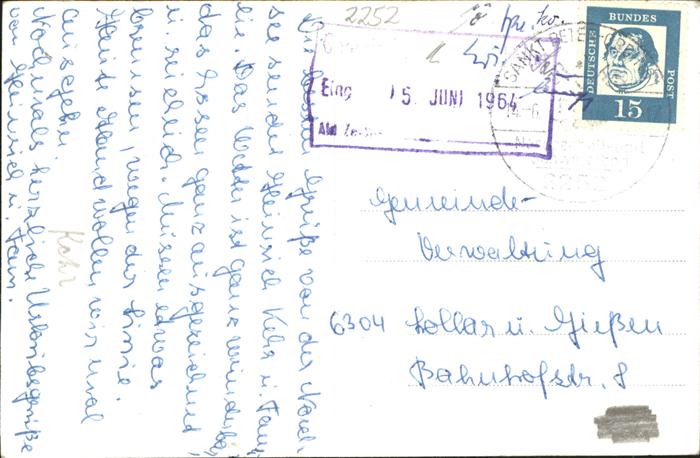 Die besten Grüße von der Nord-
see sendet Heinrich Kehr u. Fam.
lie. Das Wetter ist ganz wunderbar,
das Essen ganz ausgezeichnet
u. reichlich. Müssen etwas
bremsen, wegen der Linie.
Heute Abend wollen wir mal
ausgehn.
Nochmals herzliche Urlaubsgrüße
von Heinrich u. Fam.
Kehr
2252
Eing 15. JUNI 1964
SANKT PETER
2252
DEUTSCHE BUNDES POST
15
Gemeinde-
Verwaltung
6304 Lollar u. Gießen
Bahnhofstr. 8